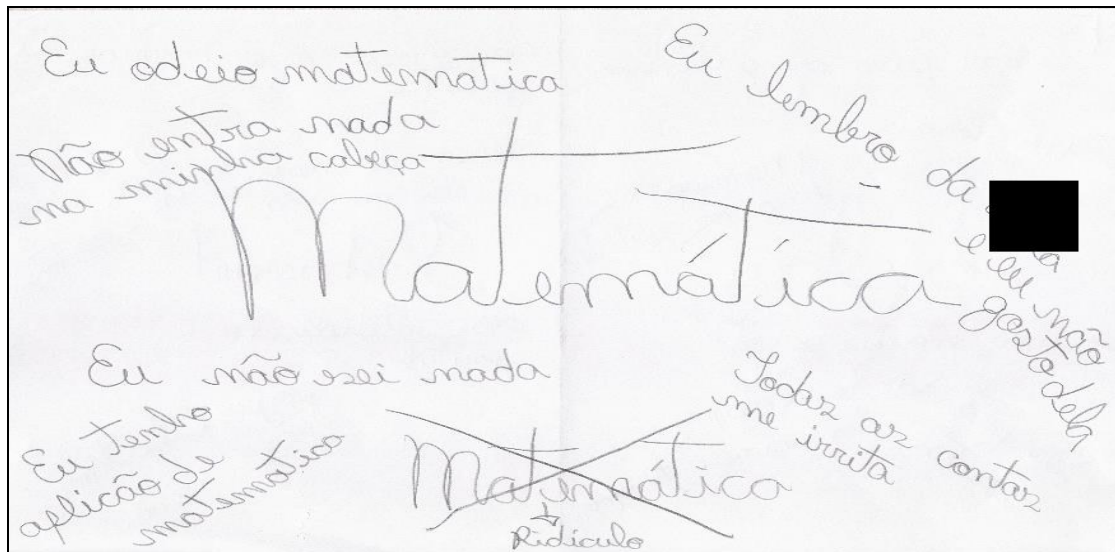 Eu odeio matematica
Não entra nada
na minha cabeça
Eu lembro da
e eu não
gosto dela
Matemática
Eu não sei nada
Eu tenho
aflicão de
matemática
Todas as contas
me irrita
Matemática
Ridículo